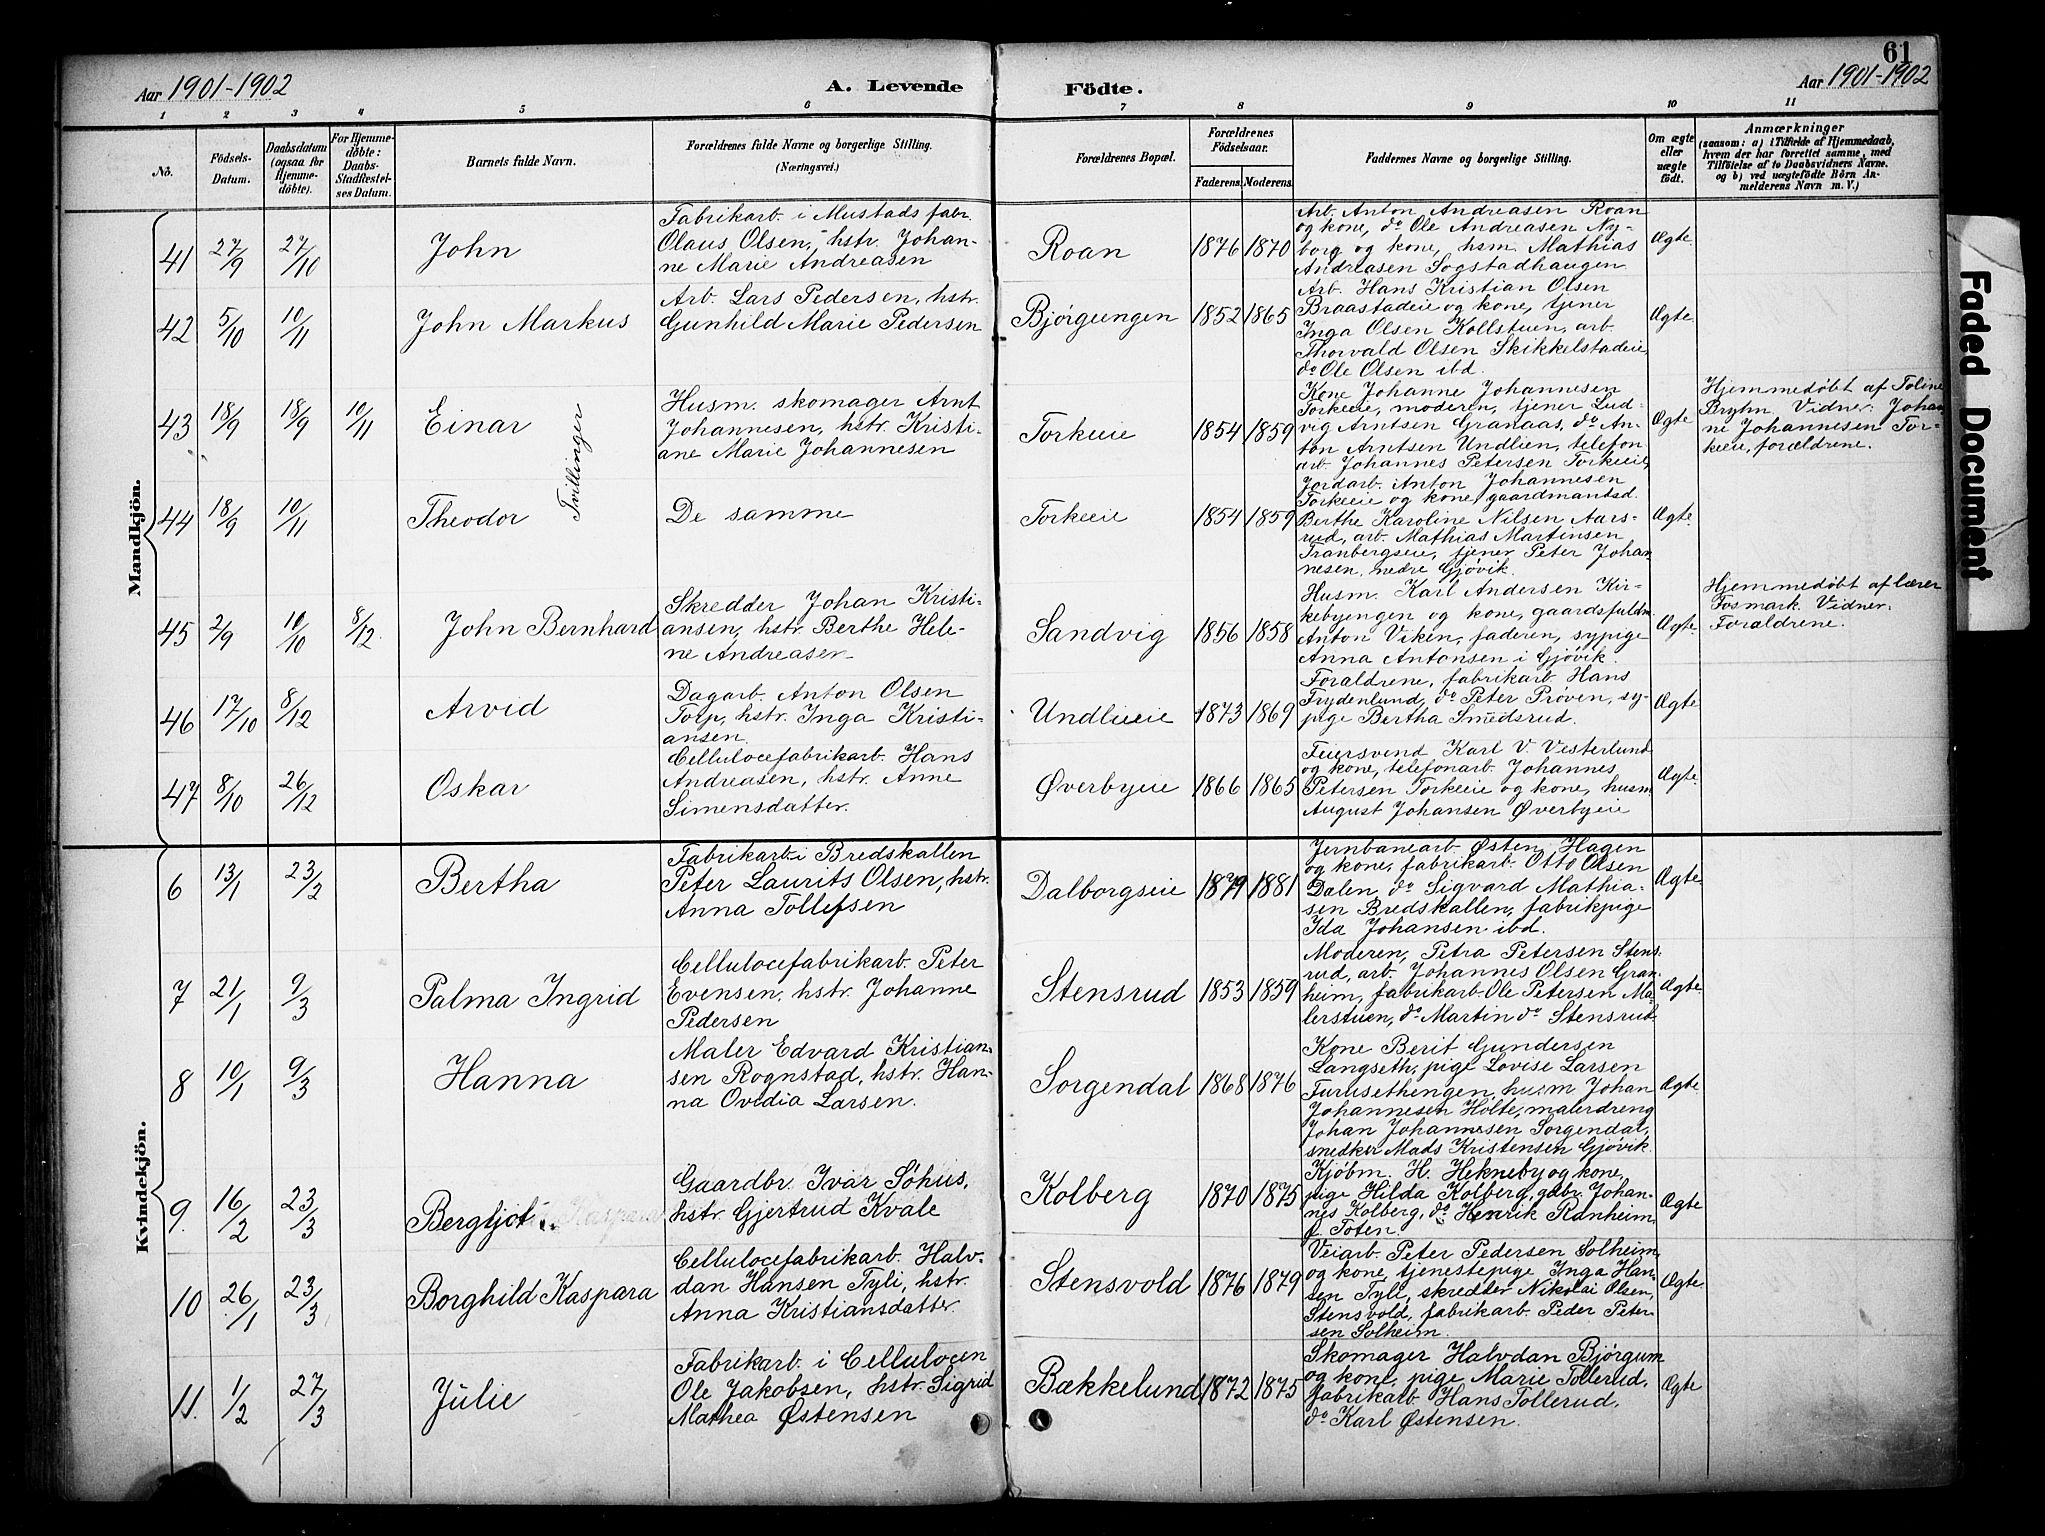 61
Aar 1901-1902
A. Levende
Födte.
Aar 1901-1902
1 2 3 4 5 6 7 8 9 10 11
No.
Födsels-
Datum.
Daabsdatum
(ogsaa for
Hjemme-
döbte).
For Hjemme-
döbte:
Daabs-
Stadfæstel-
ses Datum.
Barnets fulde Navn.
Forældrenes fulde Navne og borgerlige Stilling.
(Næringsvei.)
Forældrenes Bopæl.
Forældrenes
Födselsaar.
Faderens. Moderens.
Faddernes Navne og borgerlige Stilling.
Om ægte
eller
uægte
födt.
Anmærkninger
(saasom: a) i Tilfælde af Hjemmedaab,
hvem der har forrettet samme, med
Tilföielse af to Daabsvidners Navne.
og b) ved uægtefödte Börn An-
melderens Navn m. V.)
Mandkjön.
41 27/9 27/10
John
Fabrikarb. i Mustads fabr.
Olaus Olsen, hstr. Johan-
ne Marie Andreasen
Roan
1876 1870
Arb. Anton Andreasen Roan
og kone, do Ole Andreasen Ny-
borg og kone, hsm. Mathias
Andreasen Sogstadhaugen
Ægte
42 5/10 10/11
John Markus
Arb. Lars Pedersen, hstr.
Gunhild Marie Pedersen
Bjørgungen
1852 1865
Arb. Hans Kristian Olsen
Braastadeie og kone, tjener
Inga Olsen Kollstuen, arb.
Thorvald Olsen Skikkelstadeie,
do Ole Olsen ibd.
Ægte
43 18/9 18/9 10/11
Einar
Tvillinger
Husm. skomager Arnt
Johannesen, hstr. Kristi-
ane Marie Johannesen
Torkeeie
1854 1859
Kone Johanne Johannesen
Torkeeie, moderen, tjener Lud-
vig Arntsen Granaas, do An-
ton Arntsen Undlien, telefon
arb. Johannes Petersen Torkeeie,
Ægte
Hjemmedøbt af Toline
Bryhn Vidner: Johan
ne Johannesen Tor-
keeie, forældrene.
44 18/9 10/11
Theodor
De samme
Torkeeie
1854 1859
Jordarb. Anton Johannesen
Torkeeie og kone, gaardmandsd.
Berthe Karoline Nilsen Aars-
rud, arb. Mathias Martinsen
Tranbergseie, tjener Peter Johan
nesen, nedre Gjøvik.
Ægte
45 2/9 10/10 8/12
John Bernhard
Skredder Johan Kristi-
ansen, hstr. Berthe Hele-
ne Andreasen
Sandvig
1856 1858
Husm. Karl Andersen Kir-
kebyengen og kone, gaardsfuldm.
Anton Viken, faderen, sypige
Anna Antonsen i Gjøvik.
Ægte
Hjemmedøbt af lærer
Fosmark. Vidner:
Forældrene.
46 17/10 8/12
Arvid
Dagarb. Anton Olsen
Torp, hstr. Inga Kristi-
ansen
Undlieeie
1873 1869
Forældrene, fabrikarb. Hans
Frydenlund, do Peter Prøven, sy-
pige Bertha Smedsrud.
Ægte
47 8/10 26/12
Oskar
Cellulocefabrikarb. Hans
Andreasen, hstr. Anne
Simensdatter.
Øverbyeie
1866 1865
Feiersvend Karl V. Vesterlund
og kone, telefonarb. Johannes
Petersen Torkeeie og kone, husm
August Johansen Øverbyeie
Ægte
Kvindekjön.
6 13/1 23/2
Bertha
Fabrikarb. i Bredskallen
Peter Laurits Olsen, hstr.
Anna Tollefsen
Dalborgseie
1879 1881
Jernbanearb. Østen Hagen
og kone, fabrikarb. Otto Olsen
Dalen, do Sigvard Mathia-
sen Bredskallen, fabrikpige
Ida Johansen ibd.
Ægte
7 21/1 9/3
Palma Ingrid
Cellulocefabrikarb. Peter
Evensen, hstr. Johanne
Pedersen
Stensrud
1853 1859
Moderen, Petra Petersen Stens-
rud, arb. Johannes Olsen Gran-
heim, fabrikarb. Ole Petersen Ma-
lerstuen, do Martin do Stensrud
Ægte
8 10/1 9/3
Hanna
Maler Edvard Kristian-
sen Rognstad, hstr. Han-
na Ovidia Larsen.
Sorgendal
1868 1876
Kone Berit Gundersen
Langseth, pige Lovise Larsen
Furusethengen, husm Johan
Johannesen Holte, malerdreng
Johan Johannesen Sorgendal,
snedker Mads Kristensen Gjøvik.
Ægte
9. 16/2 23/3
Bergljot
Gaardbr. Ivar Søhus,
hstr. Gjertrud Kvale
Kolberg
1870 1875
Kjøbm. H. Hekneby og kone,
pige Hilda Kolberg, gbr. Johan-
nes Kolberg, do Henrik Ranheim,
Toten.
Ægte
10 26/1 23/3
Borghild Kaspara
Cellulocefabrikarb. Halv-
dan Hansen Tyli, hstr.
Anna Kristiansdatter.
Stensvold
1876 1879
Veiarb. Peter Pedersen Solheim
og kone, tjenestepige Inga Han-
sen Tyli, skredder Nikolai Olsen,
Stensvold, fabrikarb. Peder Peter-
sen Solheim.
Ægte
11. 1/2 27/3
Julie
Fabrikarb. i Cellulocen
Ole Jakobsen, hstr. Sigrid
Mathea Østensen
Bækkelund
1872 1875
Skomager Halvdan Bjørgum
og kone, pige Marie Tollerud,
fabrikarb. Hans Tollerud,
do Karl Østensen.
Ægte
Faded Document